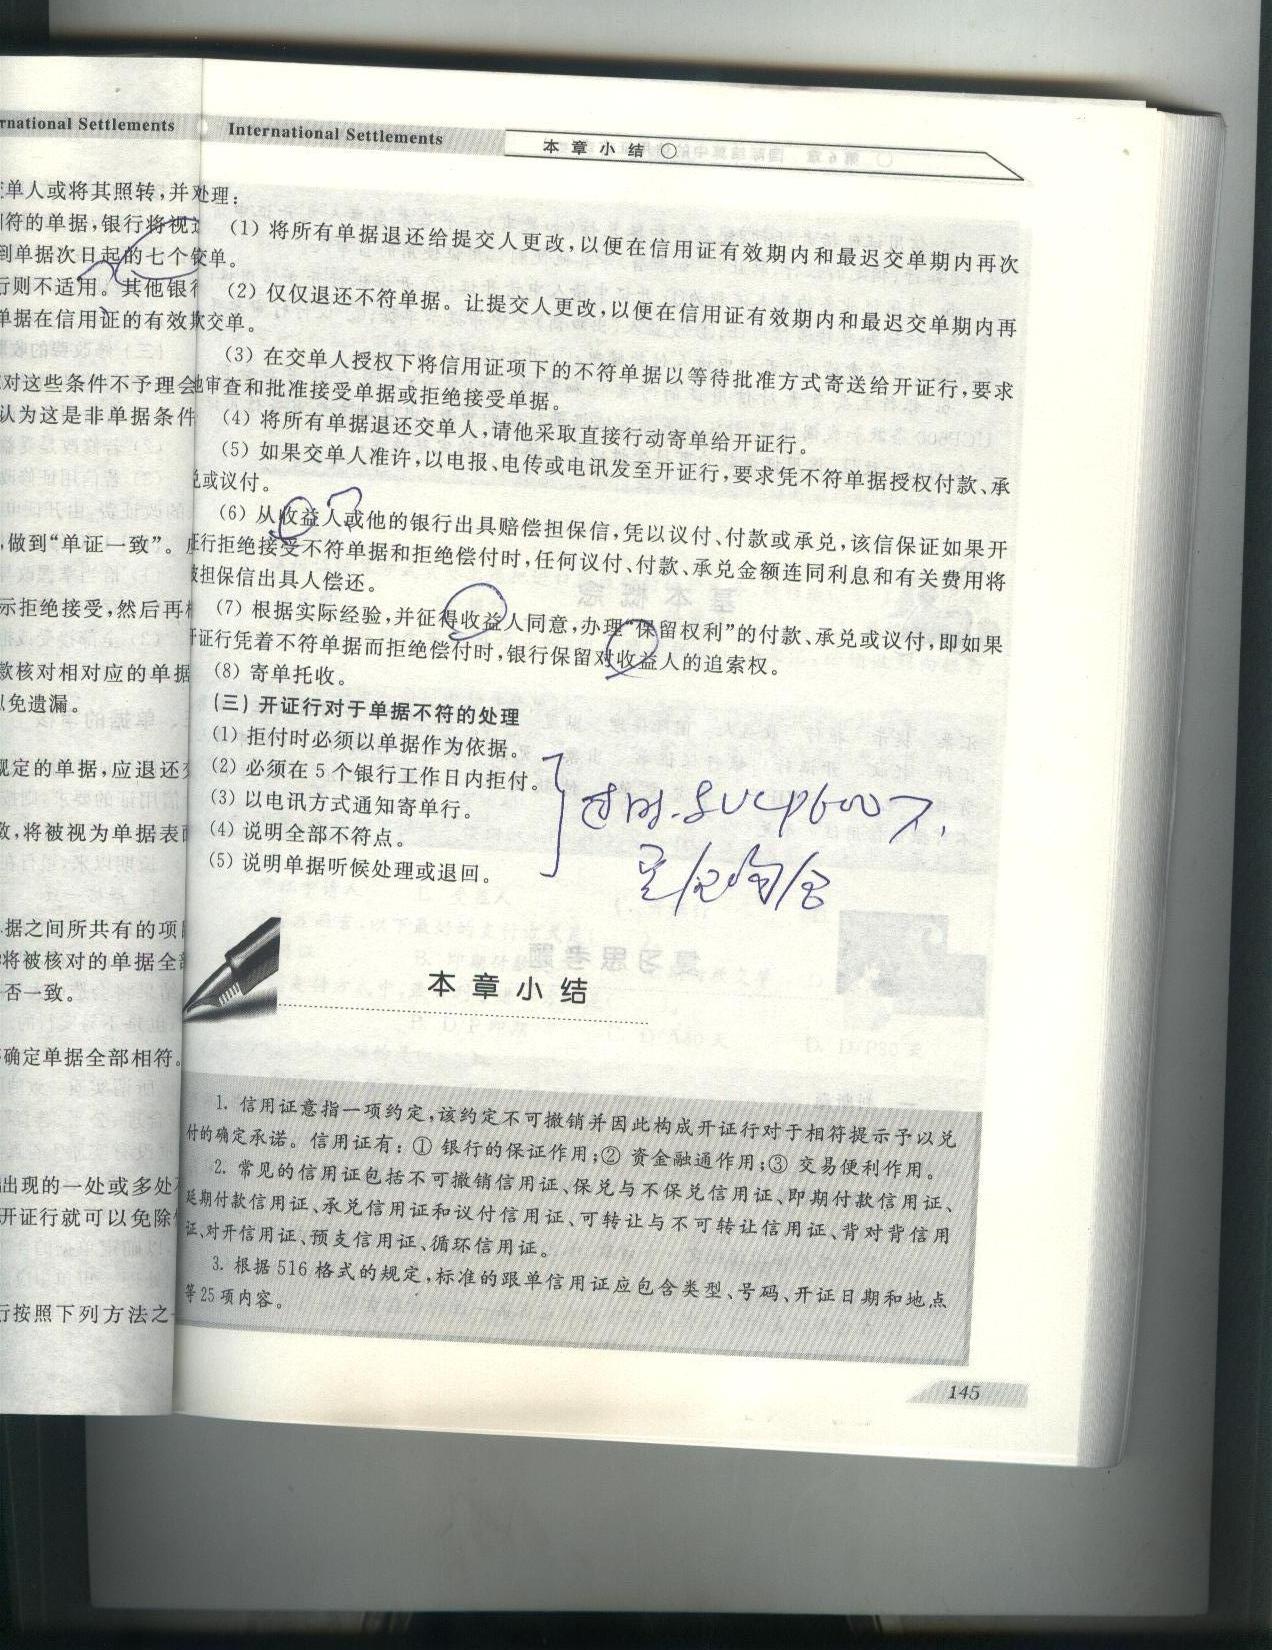 rnational Settlements
单人或将其照转,并
符的单据,银行将视
到单据次日起的七个
行则不适用。其他银行
单据在信用证的有效
对这些条件不予理会
认为这是非单据条件
,做到“单证一致”。
示拒绝接受,然后再
款核对相对应的单据
以免遗漏。
规定的单据,应退还
致,将被视为单据表面
单据之间所共有的项
将被核对的单据全部
否一致。
确定单据全部相符。
出现的一处或多处
开证行就可以免除
行按照下列方法之一
International Settlements
本章小结 ○
处理:
(1) 将所有单据退还给提交人更改,以便在信用证有效期内和最迟交单期内再次
交单。
(2) 仅仅退还不符单据。让提交人更改,以便在信用证有效期内和最迟交单期内再
次交单。
(3) 在交单人授权下将信用证项下的不符单据以等待批准方式寄送给开证行,要求
审查和批准接受单据或拒绝接受单据。
(4) 将所有单据退还交单人,请他采取直接行动寄单给开证行。
(5) 如果交单人准许,以电报、电传或电讯发至开证行,要求凭不符单据授权付款、承
兑或议付。
(6) 从收益人或他的银行出具赔偿担保信,凭以议付、付款或承兑,该信保证如果开
证行拒绝接受不符单据和拒绝偿付时,任何议付、付款、承兑金额连同利息和有关费用将
被担保信出具人偿还。
(7) 根据实际经验,并征得收益人同意,办理“保留权利”的付款、承兑或议付,即如果
开证行凭着不符单据而拒绝偿付时,银行保留对收益人的追索权。
(8) 寄单托收。
(三) 开证行对于单据不符的处理
(1) 拒付时必须以单据作为依据。
(2) 必须在 5 个银行工作日内拒付。
(3) 以电讯方式通知寄单行。
(4) 说明全部不符点。
(5) 说明单据听候处理或退回。
过时. UCP600不
本章小结
1. 信用证意指一项约定,该约定不可撤销并因此构成开证行对于相符提示予以兑
付的确定承诺。信用证有:① 银行的保证作用;② 资金融通作用;③ 交易便利作用。
2. 常见的信用证包括不可撤销信用证、保兑与不保兑信用证、即期付款信用证、
延期付款信用证、承兑信用证和议付信用证、可转让与不可转让信用证、背对背信用
证、对开信用证、预支信用证、循环信用证。
3. 根据 516 格式的规定,标准的跟单信用证应包含类型、号码、开证日期和地点
等 25 项内容。
145